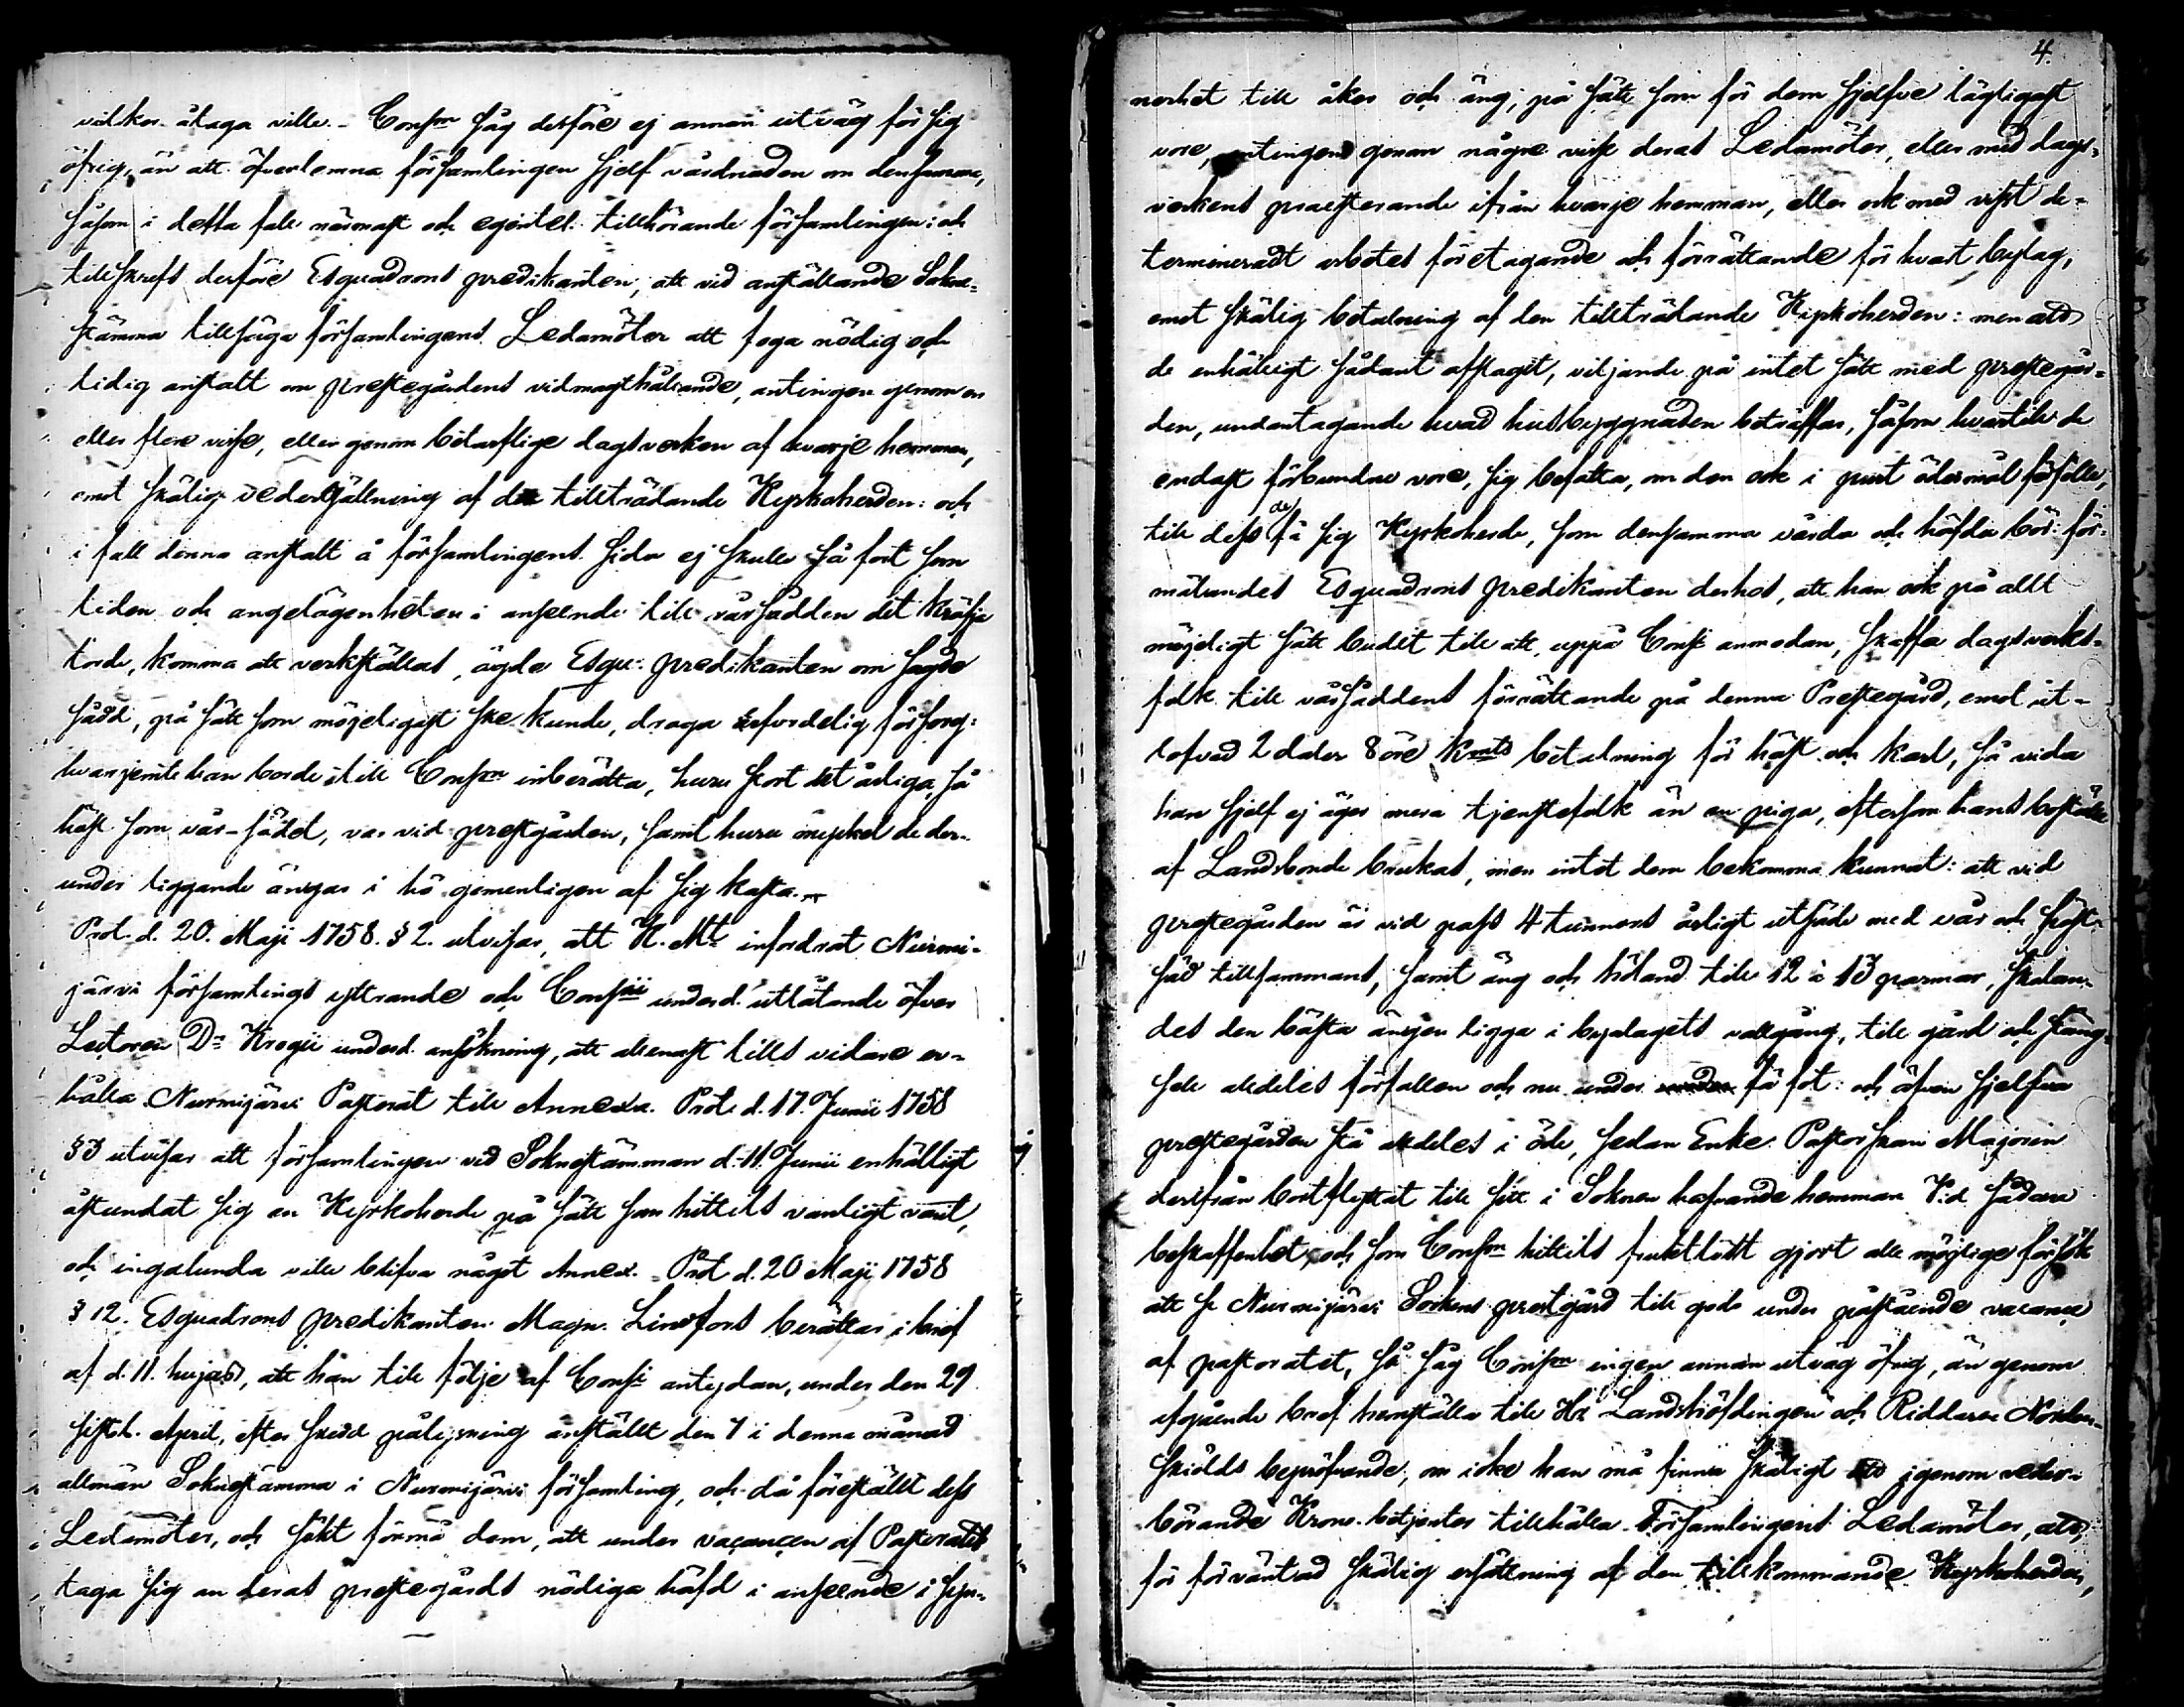 vilkor åtaga ville. – Cons:m såg derföre ej annan utväg för sig
öfrig, än att öfverlemna församlingen sjelf vårdnaden om densamma,
såsom i detta fall närmast och egentel: tillhörande församlingen: och
tillskrefs derföre Esquadrons predikanten, att vid anställande Sokne-
stämma tillsäga församlingens Ledamöter att foga nödig och
tidig anstalt om prestegårdens vidmagthållande, antingen genom en
eller flere visse, eller genom betarflige dagsverken af hvarje hemman,
emot skälig vedergällning af den tillträdande Kyrkoherden: och
i fall denna anstalt å församlingens sida ej skulle så fort som
tiden och angelägenheten i anseende till vårsådden det kräfja
torde, komma att verkställas, ägde Esqu: predikanten om sagde
sådd, på sätt som möjeligast ske kunde, draga erforderlig försorg:
hvarjemte han borde till Cons:m inberätta, huru stort det årliga, så
höst som vår-sädet, var vid prestgården, samt huru mycket de der-
under liggande ängar i hö gemenligen af sig kasta. –
Prot. d. 20. Maji 1758. § 2. utvisar, att K. Mt: infordrat Nurmi-
järvi församlings yttrande och Cons:ii underd. utlåtande öfver
Lectoren D:r Krogii underd. ansökning, att allenast tills vidare er-
hålla Nurmijärvi Pastorat till Annexa. Prot. d. 17. Junii 1758
§ 3 utvisar att församlingen vid Soknestämman d. 11. Junii enhälligt
åstundat sig en Kyrkoherde på sätt som hittills vanligt varit,
och ingalunda ville blifva något Annex. – Prot d. 20 Maji 1758
§ 12. Esquadrons predikanten Magn. Lindfors berättar i bref
af d. 11. hujus, att han till följe af Cons:ii antydan, under den 29
sistl. April, efter skedd pålysning anställt den 7 i denna månad
allmän Soknestämma i Nurmijärvi församling, och då föreställt dess
Ledamöter, och sökt förmå dem, att under vacancen af Pastoratet
taga sig an deras prestegårds nödiga häfd i anseende i syn-
4.
nerhet till åker och äng, på sätt som för dem sjelfve lägligast
vore, antingen genom någre visse deras Ledamöter, eller med dags-
verkens praesterande ifrån hvarje hemman, eller ock med visst de-
termineradt arbetes företagande och förrättande för hvart bylag,
emot skälig betalning af den tillträdande Kyrkoherden: men att
de enhälligt sådant afslagit, viljande på intet sätt med prestegår-
den, undantagande hvad husbyggnaden beträffar, såsom hvartill de
endast förbundne vore, sig befatta, om den ock i puurt ödesmål förfölle,
till dess de få sig Kyrkoherde, som densamma vårda och häfda bör: för-
mälandes Esquadrons predikanten derhos, att han ock på allt
möjeligt sätt budit till att, uppå Cons:ii anmodan, skaffa dagsverks-
folk till vårsåddens förrättande på denna Prestegård, emot ut-
lofvad 2 daler 8 öre K:mts betalning för häst och karl, så vida
han sjelf ej äger mera tjenstefolk än en piga, eftersom hans boställe
af Landbonde brukas, men intet dem bekomma kunnat: att vid
prestegården är vid pass 4 tunnors årligt utsäde med vår och höst-
säd tillsammans, samt äng och höland till 12 à 13 parmar, skolan-
des den bästa ängen ligga i byalagets vallgång, till gärd och stäng-
sele alldeles förfallen och nu under få fot: och äfven sjelfva
prestegården stå alldeles i öde, sedan Enke Pastorskan Majorin
derifrån bortflyttat till sitt i Soknen hafvande hemman. Vid sådan
beskaffenhet, och som Cons:m hittills fruktlöst gjort alla möjlige försök
att se Nurmijärvi Sockens prestgård till godo under påstående vacance
af pastoratet, så såg Cons:m ingen annan utväg öfrig, än genom
afgående bref hemställa till Hr Landshöfdingen och Riddaren Norden-
skiölds bepröfvande, om icke han må finna skäligt igenom veder-
börande Krono-betjenter tillhålla Församlingens Ledamöter, att,
för förväntad skälig ersättning af den tillkommande Kyrkoherden,